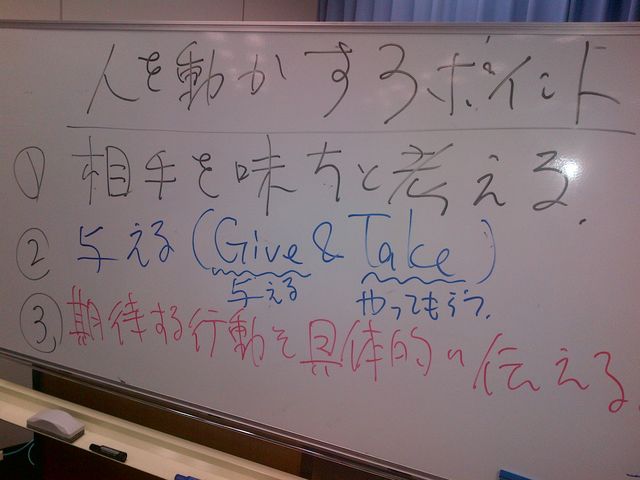 人を動かすポイント
① 相手を味方と考える.
② 与える (Give & Take)
与える やってもらう.
③ 期待する行動を具体的に伝える.